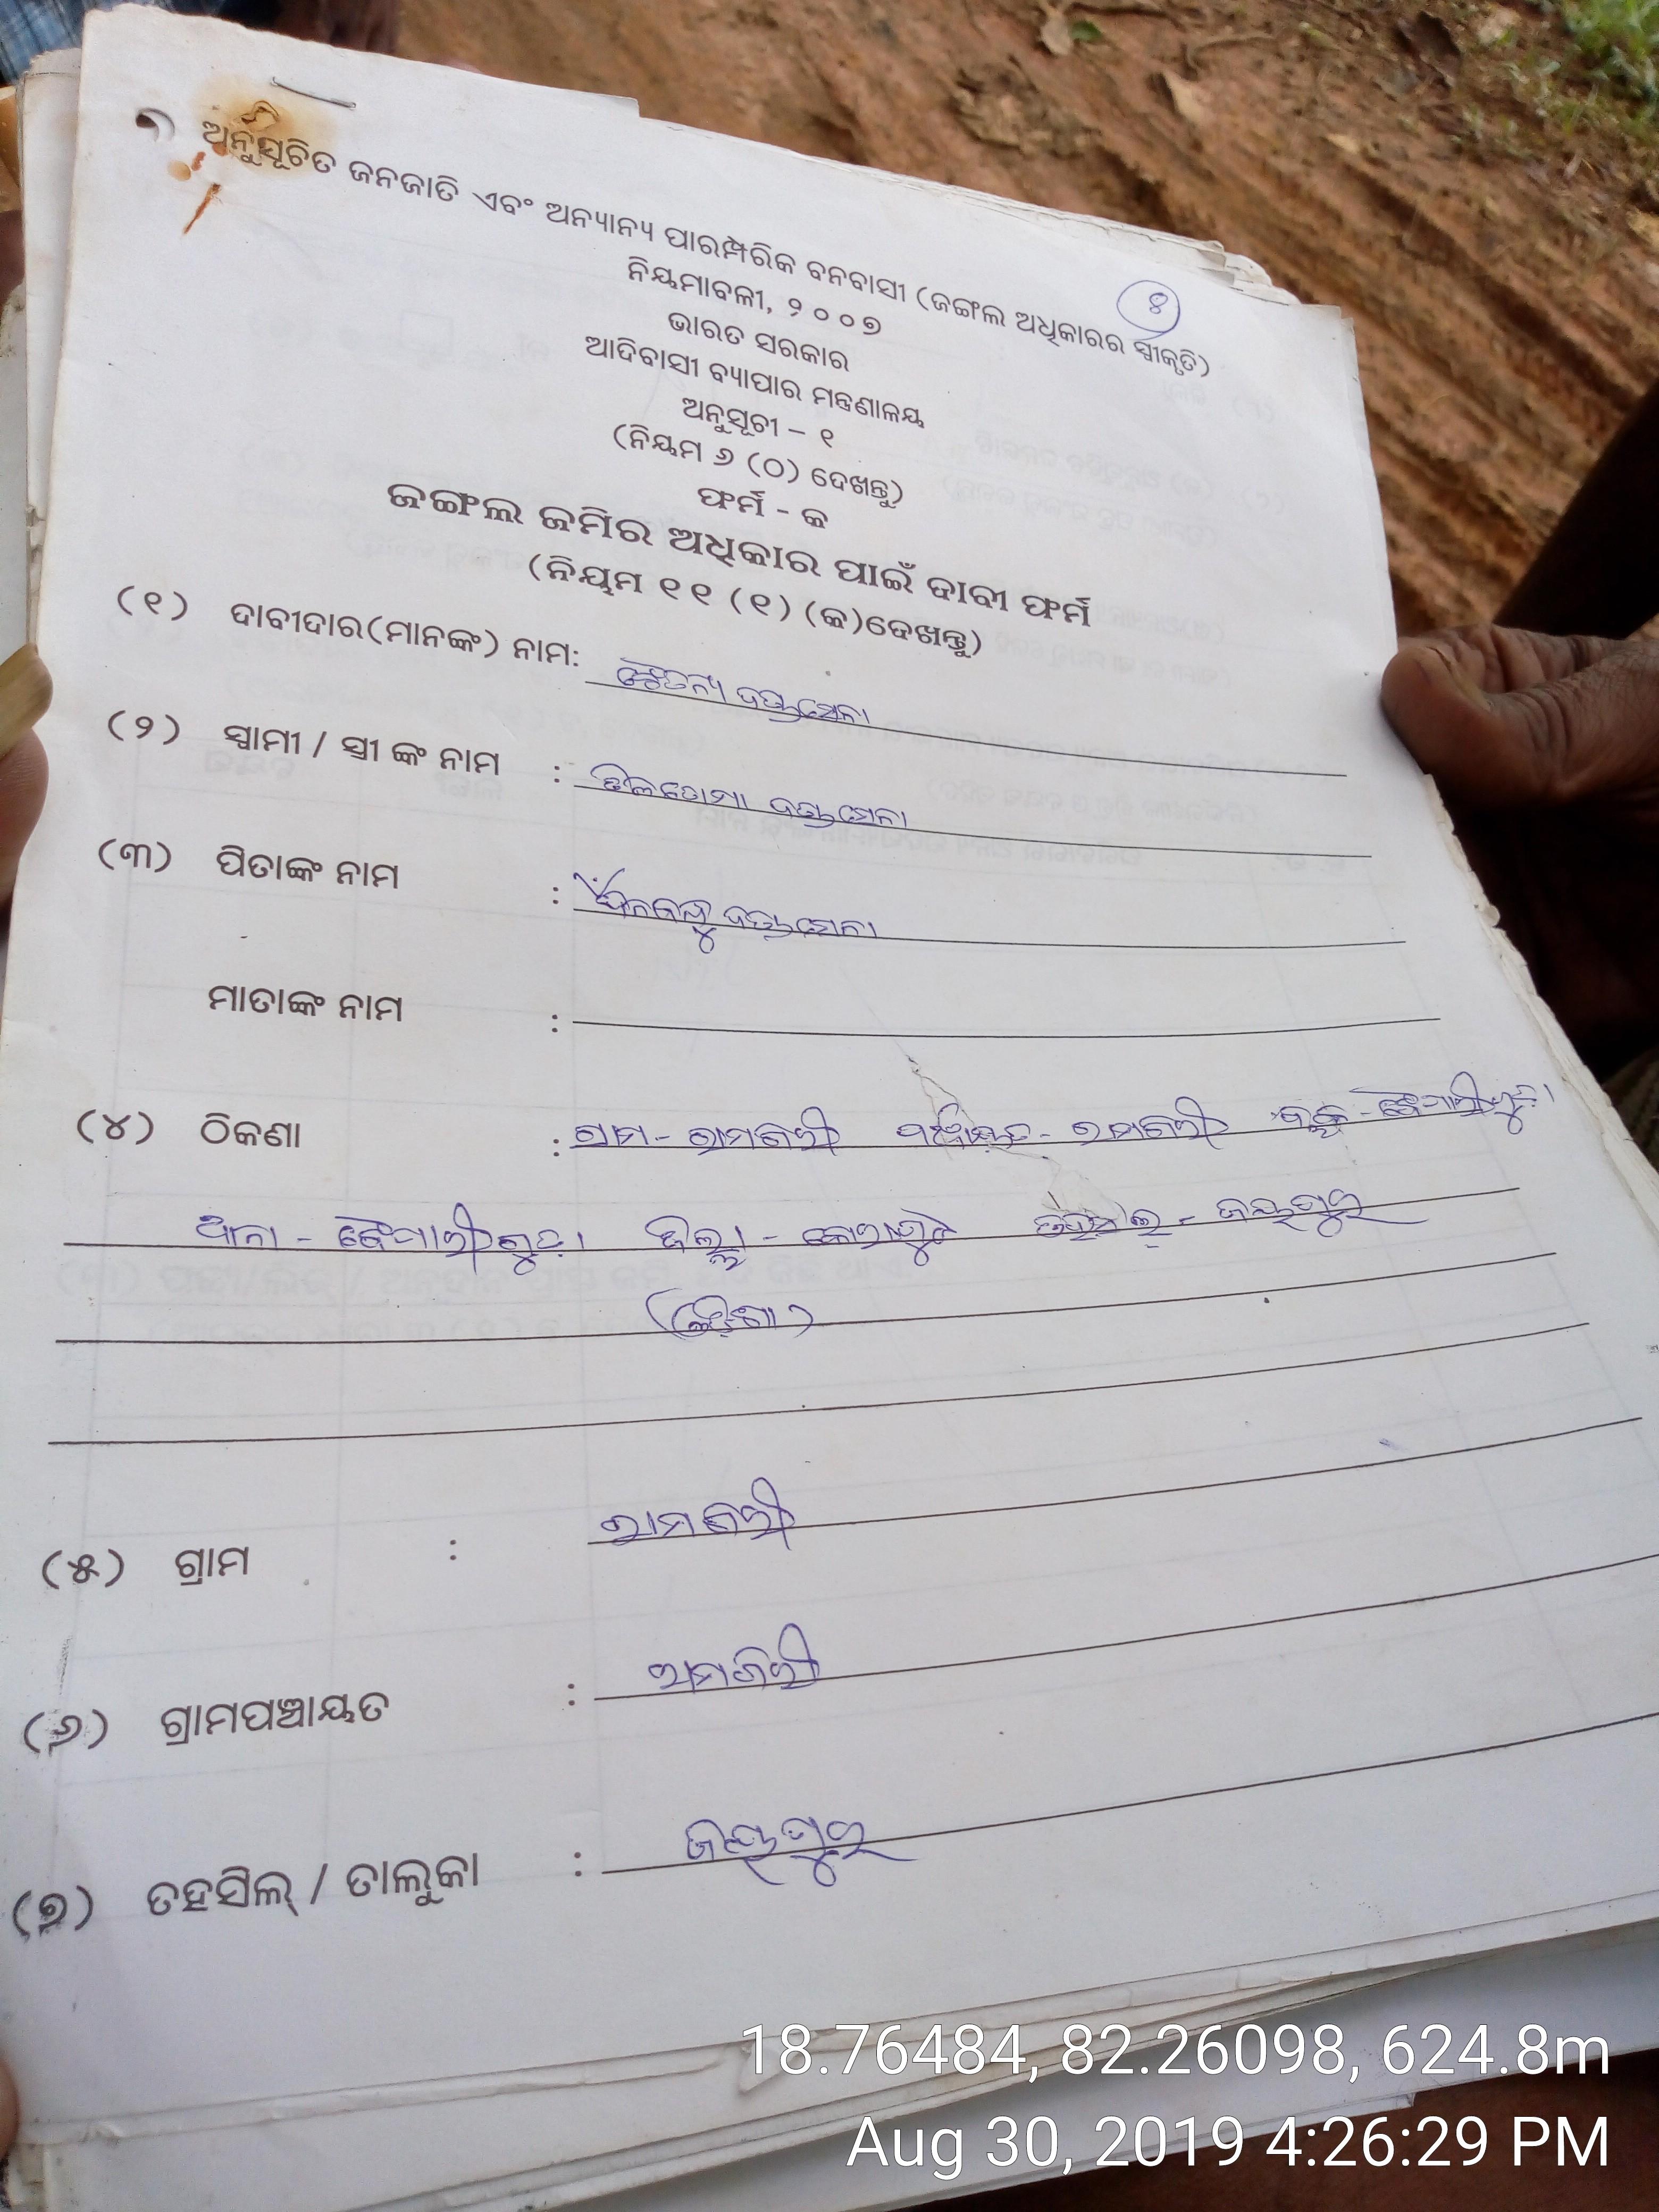 ୪
ଅନୁସୂଚିତ ଜନଜାତି ଏବଂ ଅନ୍ୟାନ୍ୟ ପାରମ୍ପରିକ ବନବାସୀ (ଜଙ୍ଗଲ ଅଧିକାରର ସ୍ୱୀକୃତି)
ନିୟମାବଳୀ, ୨୦୦୭
ଭାରତ ସରକାର
ଆଦିବାସୀ ବ୍ୟାପାର ମନ୍ତ୍ରଣାଳୟ
ଅନୁସୂଚୀ – ୧
(ନିୟମ ୬ (ଠ) ଦେଖନ୍ତୁ)
ଫର୍ମ - କ
ଜଙ୍ଗଲ ଜମିର ଅଧିକାର ପାଇଁ ଦାବୀ ଫର୍ମ
(ନିୟମ ୧୧ (୧) (କ)ଦେଖନ୍ତୁ)
(୧) ଦାବୀଦାର(ମାନଙ୍କ) ନାମ: ଚୈତନ୍ୟ
(୨) ସ୍ୱାମୀ / ସ୍ତ୍ରୀ ଙ୍କ ନାମ :
(୩) ପିତାଙ୍କ ନାମ :
ମାତାଙ୍କ ନାମ :
(୪) ଠିକଣା : ଗ୍ରାମ - ରାମଗିରୀ ପଞ୍ଚାୟତ - ରାମଗିରୀ ବ୍ଲକ - ବୈପାରୀଗୁଡ଼ା
ଥାନା - ବୈପାରୀଗୁଡ଼ା ଜିଲ୍ଲା - କୋରାପୁଟ ତହସିଲ୍ - ଜୟପୁର
(ଓଡ଼ିଶା)
(୫) ଗ୍ରାମ : ରାମଗିରୀ
(୬) ଗ୍ରାମପଞ୍ଚାୟତ : ରାମଗିରୀ
(୭) ତହସିଲ୍ / ତାଲୁକା : ଜୟପୁର
18.76484, 82.26098, 624.8m
Aug 30, 2019 4:26:29 PM